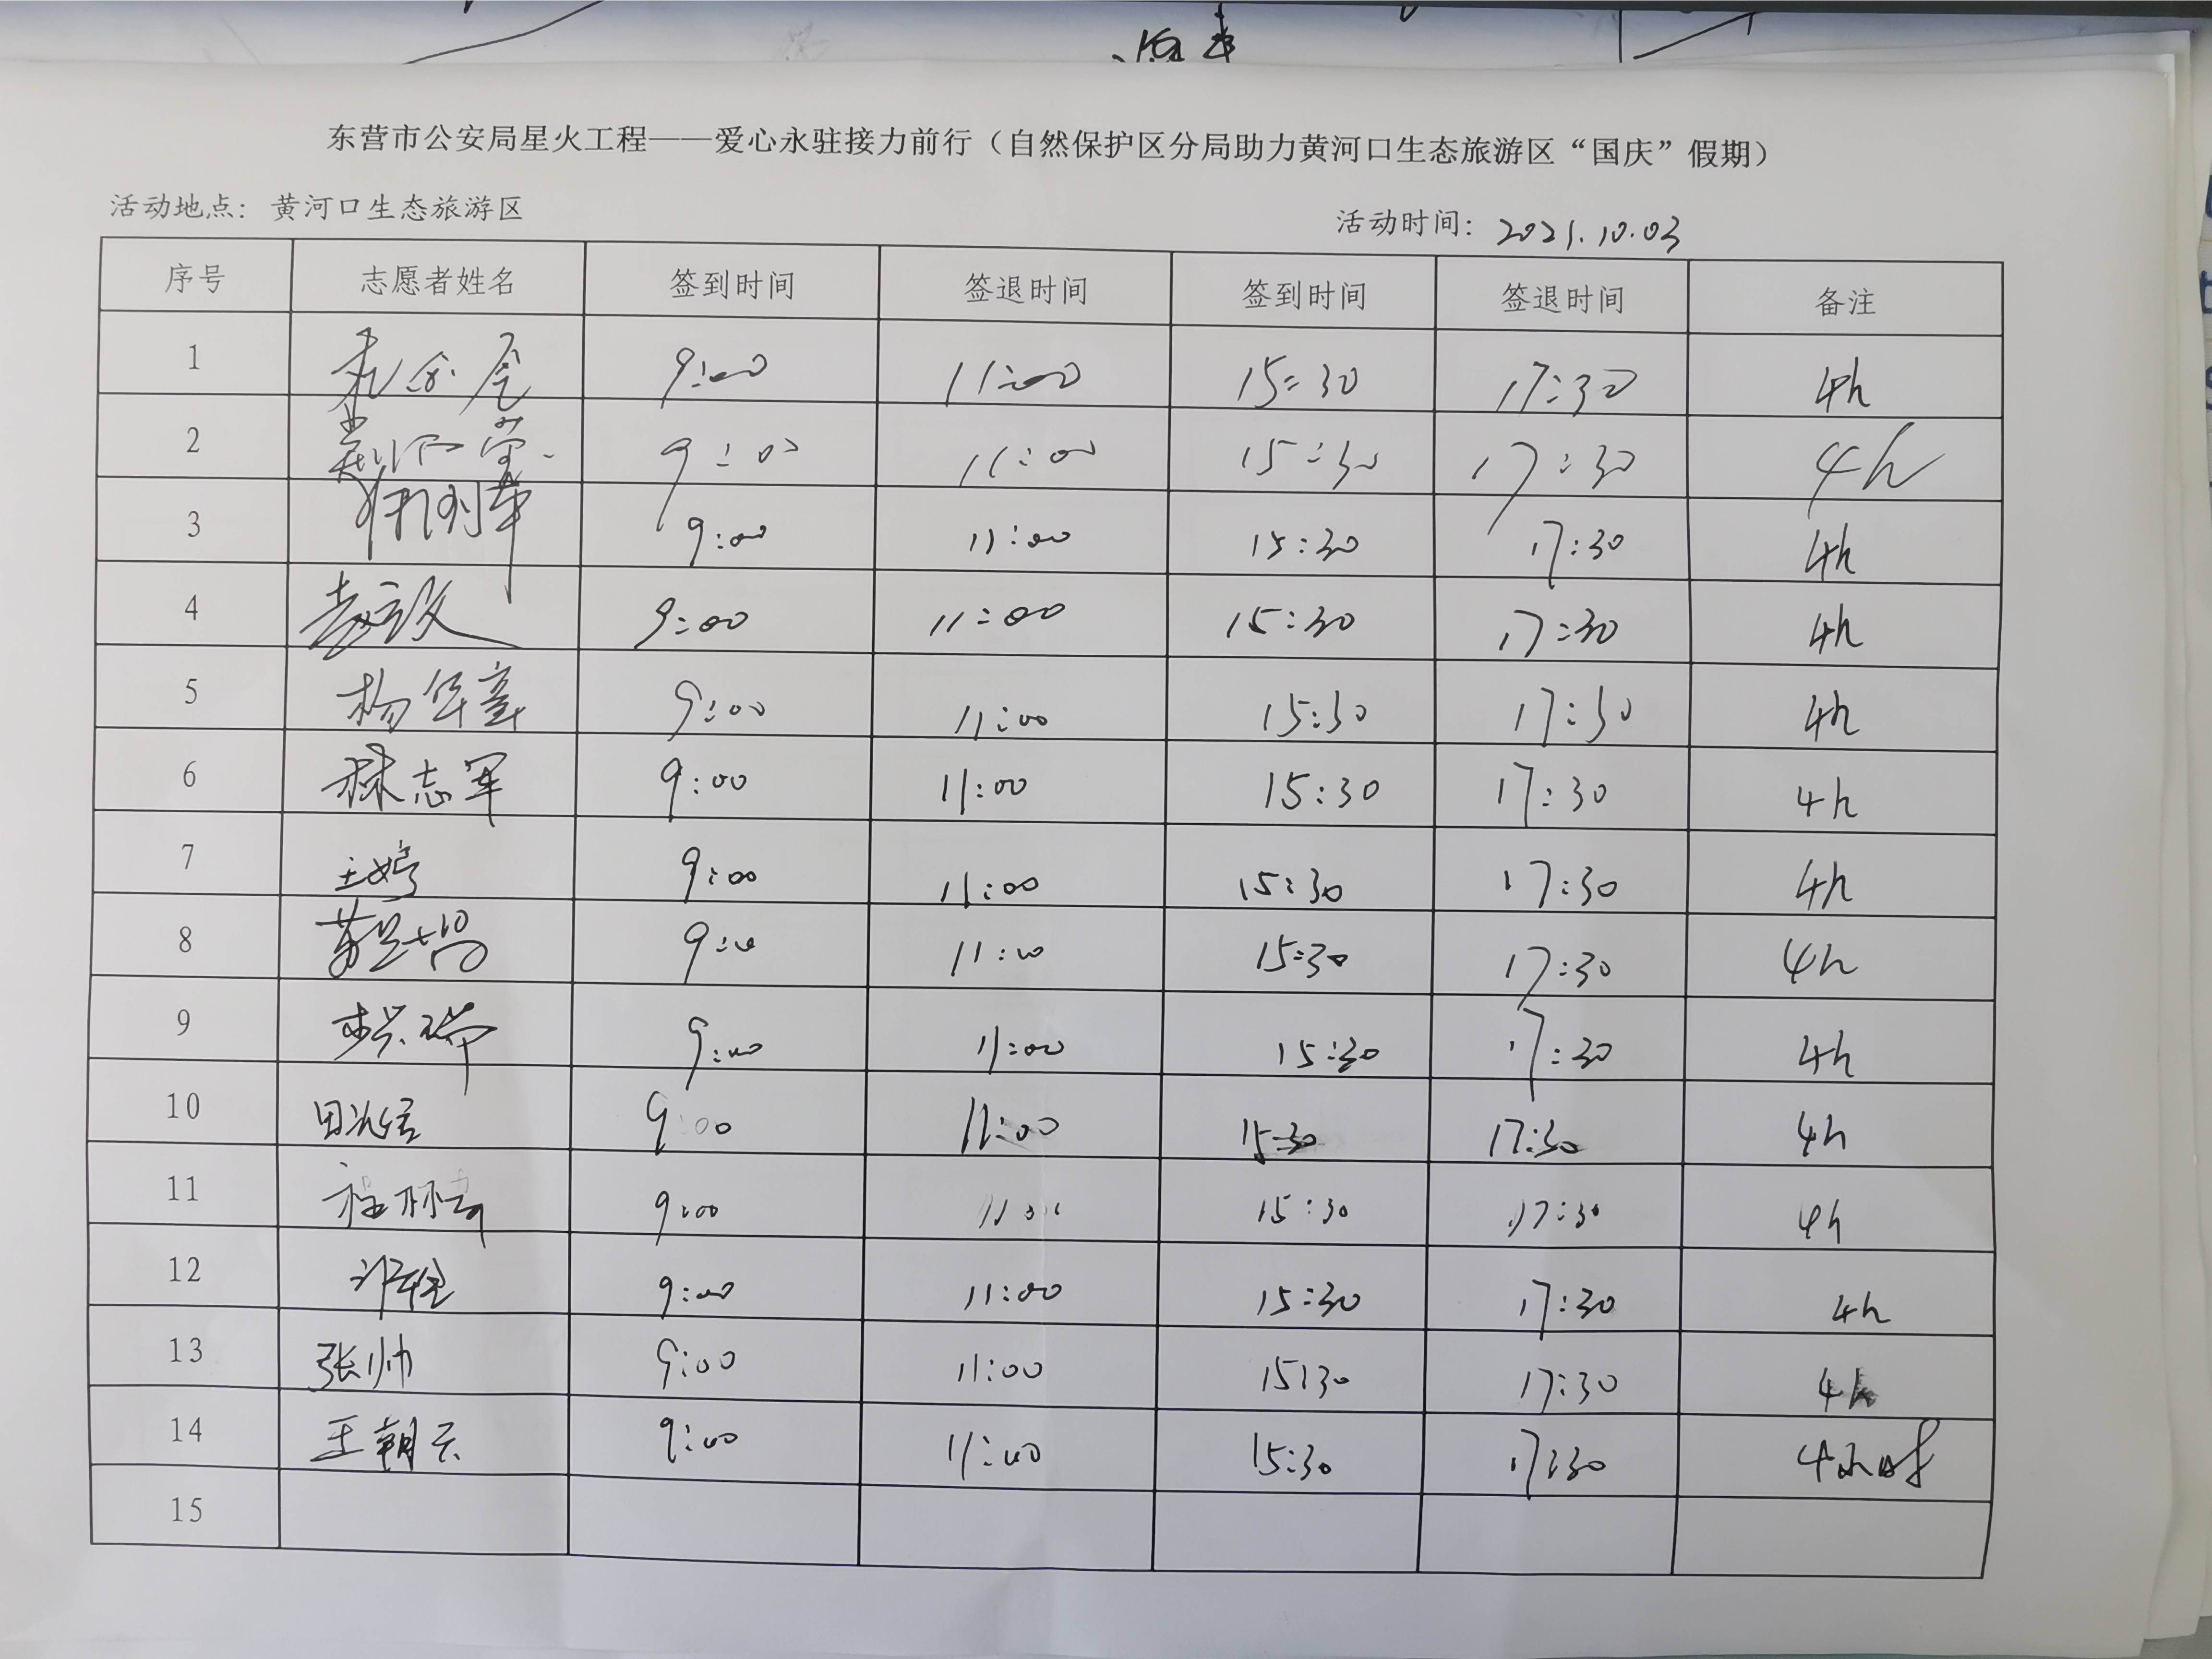 东营市公安局星火工程——爱心永驻接力前行（自然保护区分局助力黄河口生态旅游区“国庆”假期）
活动地点：黄河口生态旅游区 活动时间：2021.10.03
序号 志愿者姓名 签到时间 签退时间 签到时间 签退时间 备注
1 9:00 11:00 15:30 17:30 4h
2 9:00 11:00 15:30 17:30 4h
3 9:00 11:00 15:30 17:30 4h
4 9:00 11:00 15:30 17:30 4h
5 9:00 11:00 15:30 17:30 4h
6 林志军 9:00 11:00 15:30 17:30 4h
7 王婷 9:00 11:00 15:30 17:30 4h
8 9:00 11:00 15:30 17:30 4h
9 9:00 11:00 15:30 17:30 4h
10 9:00 11:00 15:30 17:30 4h
11 9:00 11:00 15:30 17:30 4h
12 9:00 11:00 15:30 17:30 4h
13 张帅 9:00 11:00 15:30 17:30 4h
14 王朝云 9:00 11:00 15:30 17:30 4小时
15